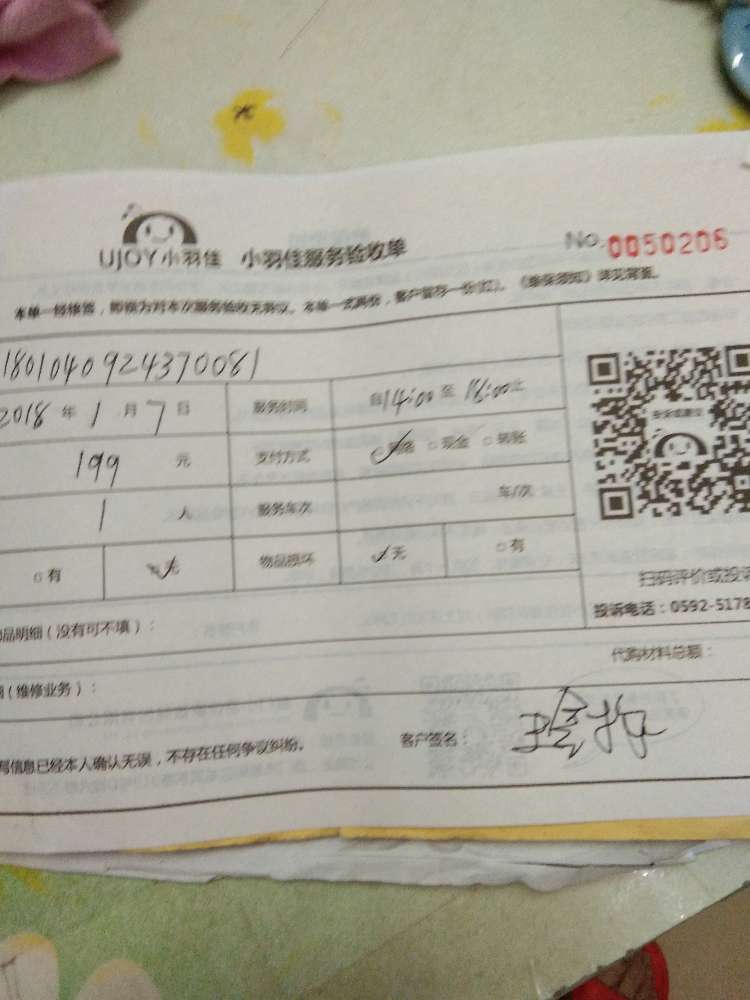 UJOY小羽佳 小羽佳服务验收单 No. 0050206
本单一经接签，即视为对本次服务验收无异议。本单一式两份，客户留存一份(红)。《维保须知》详见背面。
1801040924370081
2018 年 1 月 7 日 服务时间 自14:00 至 18:00止
199 元 支付方式 网络 现金 转账
1 人 服务车次 车/次
有 无 物品损坏 无 有
扫码评价或投诉
品明细(没有可不填)：
投诉电话：0592-5178
代购材料总额：
(维修业务)：
写信息已经本人确认无误，不存在任何争议纠纷。 客户签名：